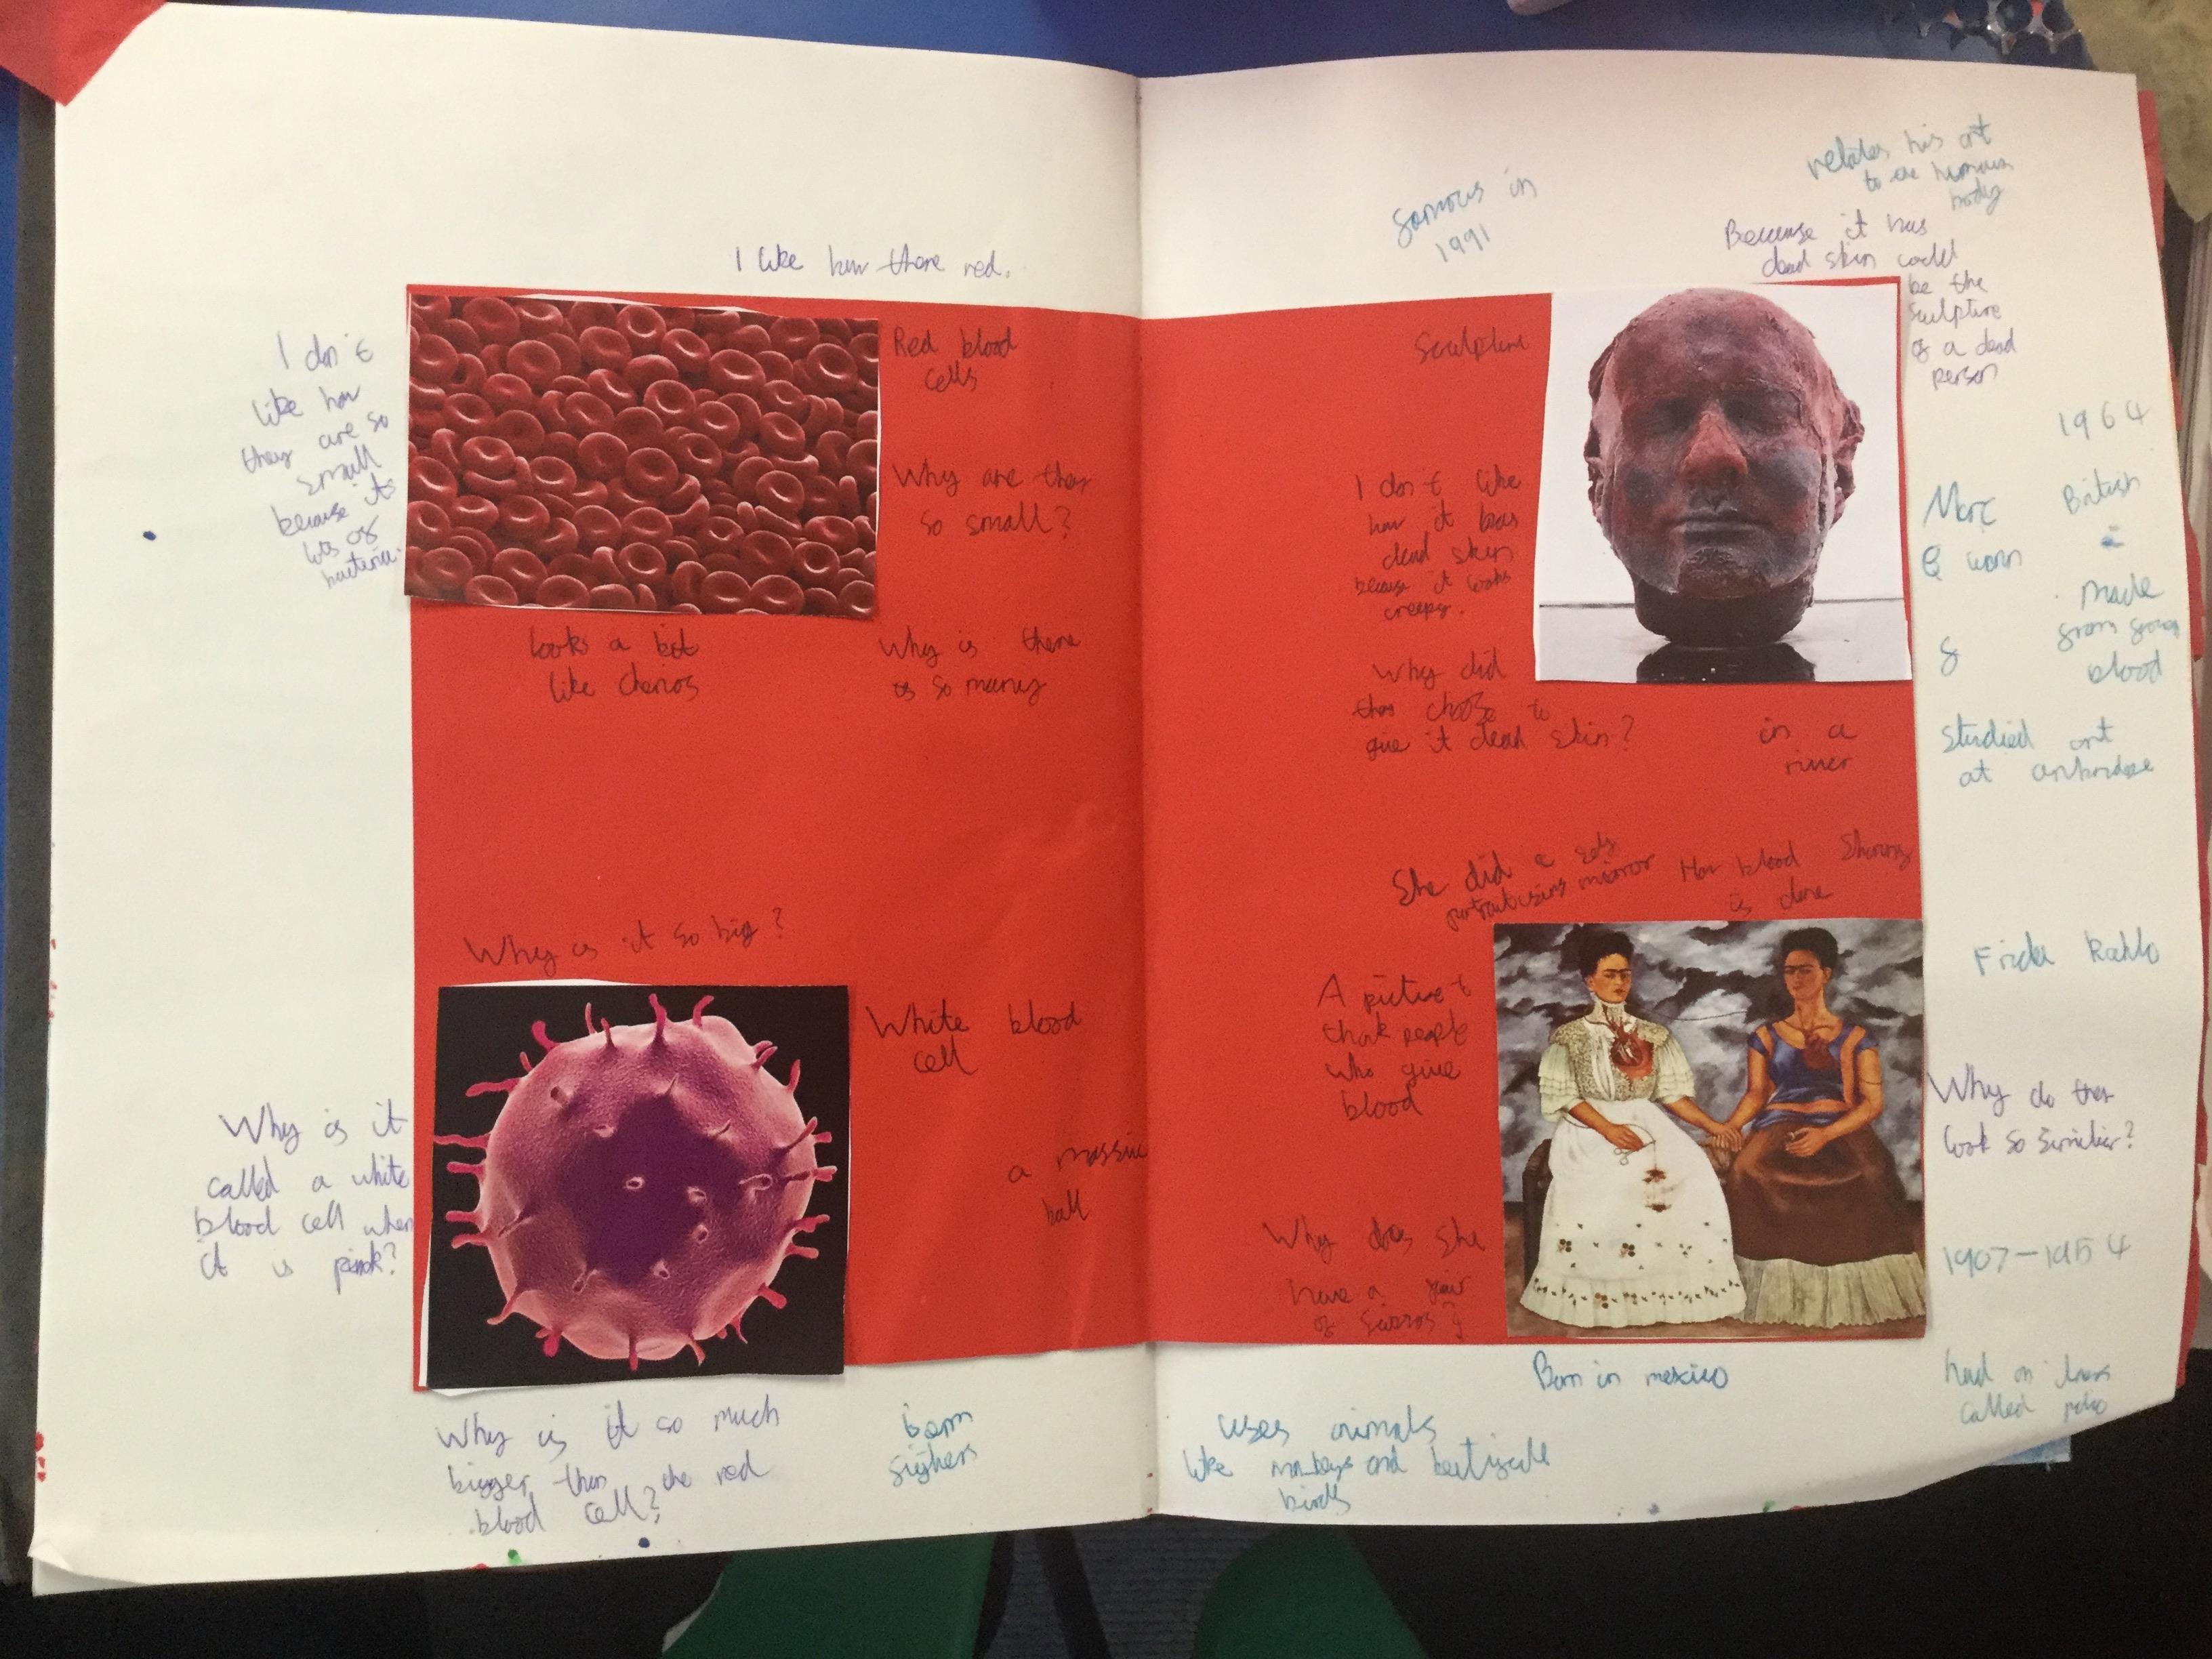 I like how there red.
I don't
like how
they are so
small
because its
lots of
bacteria.
Red blood
cells
Why are they
so small?
looks a bit
like cherios
Why is there
so many
Why is it so big?
White blood
cell
a massive
ball
Why is it
called a white
blood cell when
it is pink?
Why is it so much
bigger than the red
blood cell?
born
famous in
1991
relates his art
to the human
body
Because it has
dead skin could
be the
sculpture
of a dead
person
Sculpture
I don't like
how it has
dead skin
because it looks
creepy.
Why did
they choose to
give it dead skin?
in a
river
1964
Marc
British
Q
made
from
blood
Studied art
at
She did a self
portrait using mirror
How blood Sharing
is done
A picture t
thank people
who give
blood
Why does she
have a pair
of
Frida Kahlo
Why do they
look so similier?
1907-1954
had an
called polio
Born in mexico
uses animals
like monkeys and
birds